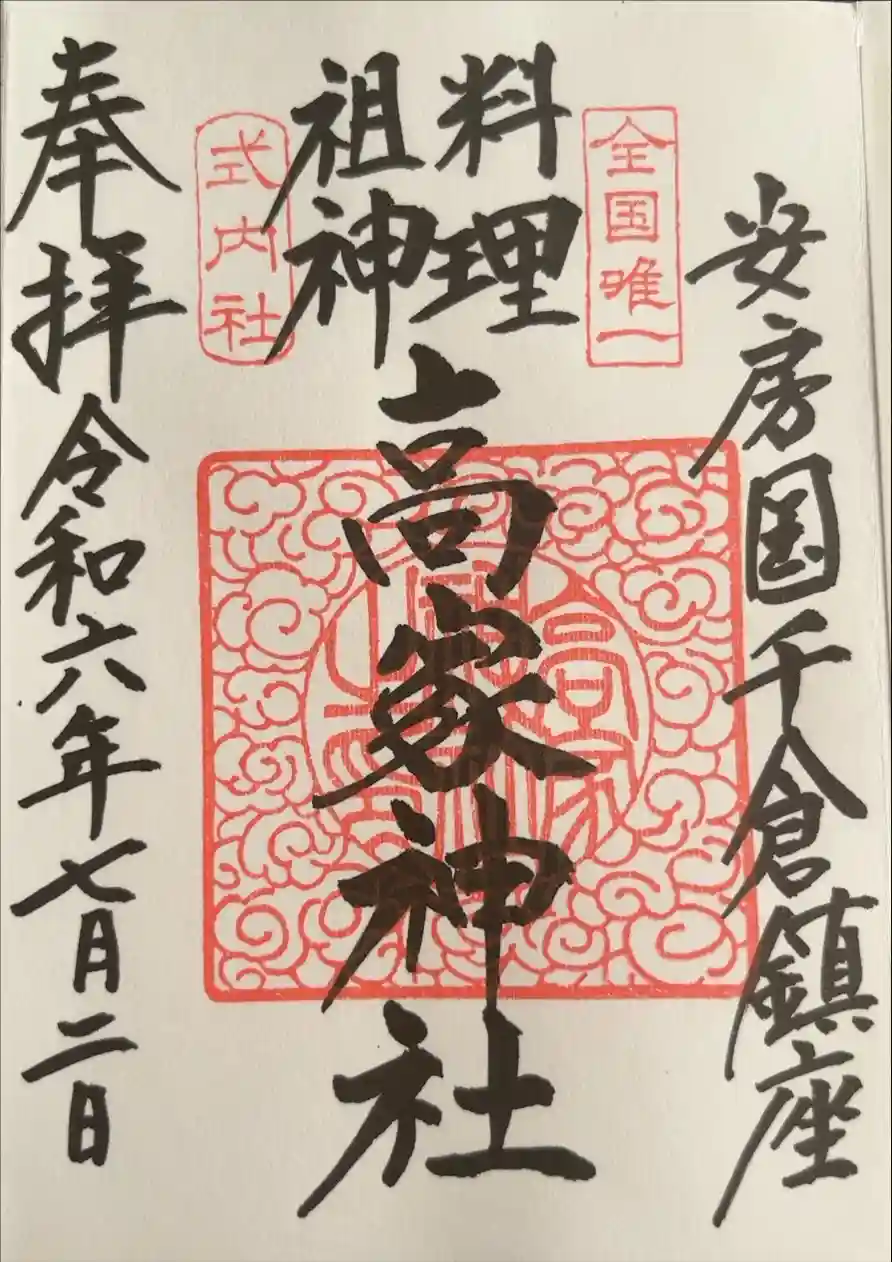 安房国千倉鎮座
全国唯一
料理
祖神
高家神社
式内社
奉拝
令和六年七月二日